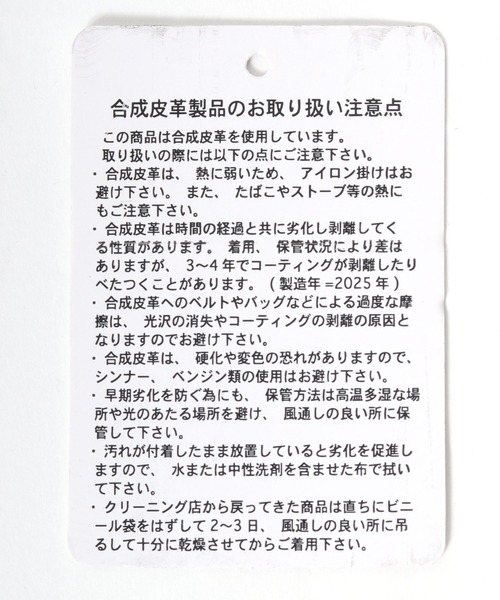 合成皮革製品のお取り扱い注意点
この商品は合成皮革を使用しています。
取り扱いの際には以下の点にご注意下さい。
・合成皮革は、 熱に弱いため、 アイロン掛けはお
避け下さい。 また、 たばこやストーブ等の熱に
もご注意下さい。
・合成皮革は時間の経過と共に劣化し剥離してく
る性質があります。 着用、 保管状況により差は
ありますが、 3～4年でコーティングが剥離したり
べたつくことがあります。 (製造年=2025年)
・合成皮革へのベルトやバッグなどによる過度な摩
擦は、 光沢の消失やコーティングの剥離の原因と
なりますのでお避け下さい。
・合成皮革は、 硬化や変色の恐れがありますので、
シンナー、 ベンジン類の使用はお避け下さい。
・早期劣化を防ぐ為にも、 保管方法は高温多湿な場
所や光のあたる場所を避け、 風通しの良い所に保
管して下さい。
・汚れが付着したまま放置していると劣化を促進し
ますので、 水または中性洗剤を含ませた布で拭い
て下さい。
・クリーニング店から戻ってきた商品は直ちにビニ
ール袋をはずして2～3日、 風通しの良い所に吊
るして十分に乾燥させてからご着用下さい。